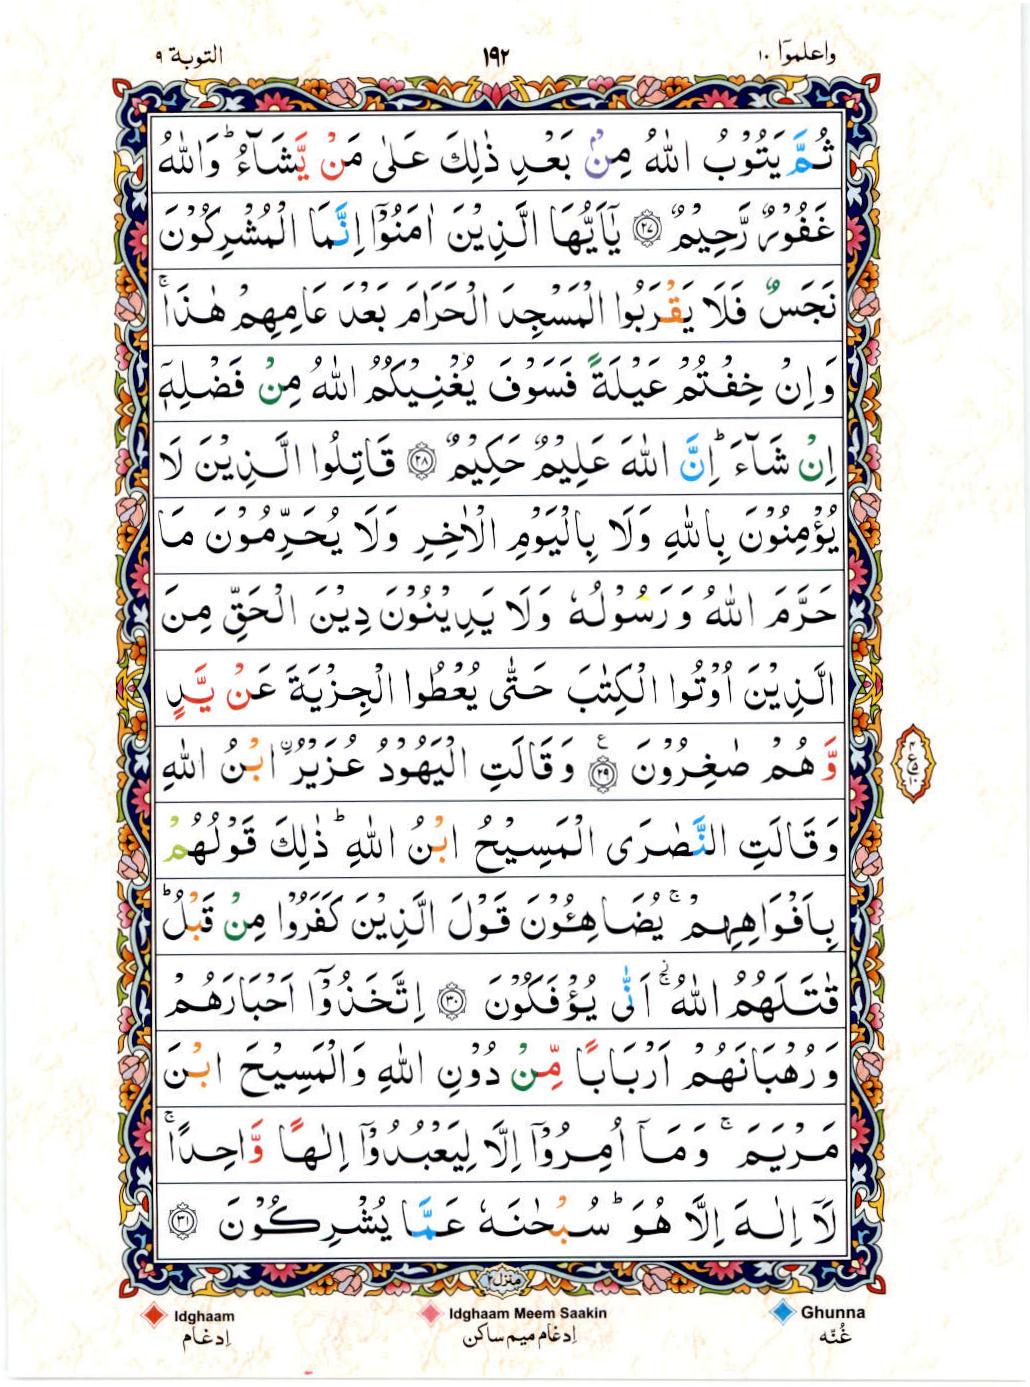 واعلموٓا ١٠
١٩٢
التوبة ٩
ثُمَّ يَتُوْبُ اللّٰهُ مِنْۢ بَعْدِ ذٰلِكَ عَلٰى مَنْ يَّشَآءُ ؕ وَاللّٰهُ
غَفُوْرٌ رَّحِيْمٌ ﴿٢٧﴾ يٰۤاَيُّهَا الَّذِيْنَ اٰمَنُوْۤا اِنَّمَا الْمُشْرِكُوْنَ
نَجَسٌ فَلَا يَقْرَبُوا الْمَسْجِدَ الْحَرَامَ بَعْدَ عَامِهِمْ هٰذَا ۚ
وَاِنْ خِفْتُمْ عَيْلَةً فَسَوْفَ يُغْنِيْكُمُ اللّٰهُ مِنْ فَضْلِهٖۤ
اِنْ شَآءَ ؕ اِنَّ اللّٰهَ عَلِيْمٌ حَكِيْمٌ ﴿٢٨﴾ قَاتِلُوا الَّذِيْنَ لَا
يُؤْمِنُوْنَ بِاللّٰهِ وَلَا بِالْيَوْمِ الْاٰخِرِ وَلَا يُحَرِّمُوْنَ مَا
حَرَّمَ اللّٰهُ وَرَسُوْلُهٗ وَلَا يَدِيْنُوْنَ دِيْنَ الْحَقِّ مِنَ
الَّذِيْنَ اُوْتُوا الْكِتٰبَ حَتّٰى يُعْطُوا الْجِزْيَةَ عَنْ يَّدٍ
وَّهُمْ صٰغِرُوْنَ ﴿٢٩﴾ ع وَقَالَتِ الْيَهُوْدُ عُزَيْرُ ۨابْنُ اللّٰهِ
وَقَالَتِ النَّصٰرَى الْمَسِيْحُ ابْنُ اللّٰهِ ؕ ذٰلِكَ قَوْلُهُمْ
بِاَفْوَاهِهِمْ ۚ يُضَاهِئُوْنَ قَوْلَ الَّذِيْنَ كَفَرُوْا مِنْ قَبْلُ ؕ
قٰتَلَهُمُ اللّٰهُ ۚ اَنّٰى يُؤْفَكُوْنَ ﴿٣٠﴾ اِتَّخَذُوْۤا اَحْبَارَهُمْ
وَرُهْبَانَهُمْ اَرْبَابًا مِّنْ دُوْنِ اللّٰهِ وَالْمَسِيْحَ ابْنَ
مَرْيَمَ ۚ وَمَاۤ اُمِرُوْۤا اِلَّا لِيَعْبُدُوْۤا اِلٰهًا وَّاحِدًا ۚ
لَاۤ اِلٰهَ اِلَّا هُوَ ؕ سُبْحٰنَهٗ عَمَّا يُشْرِكُوْنَ ﴿٣١﴾
منزل ٢
Idghaam Idghaam Meem Saakin Ghunna
اِدغام اِدغام میم ساکن غُنّه